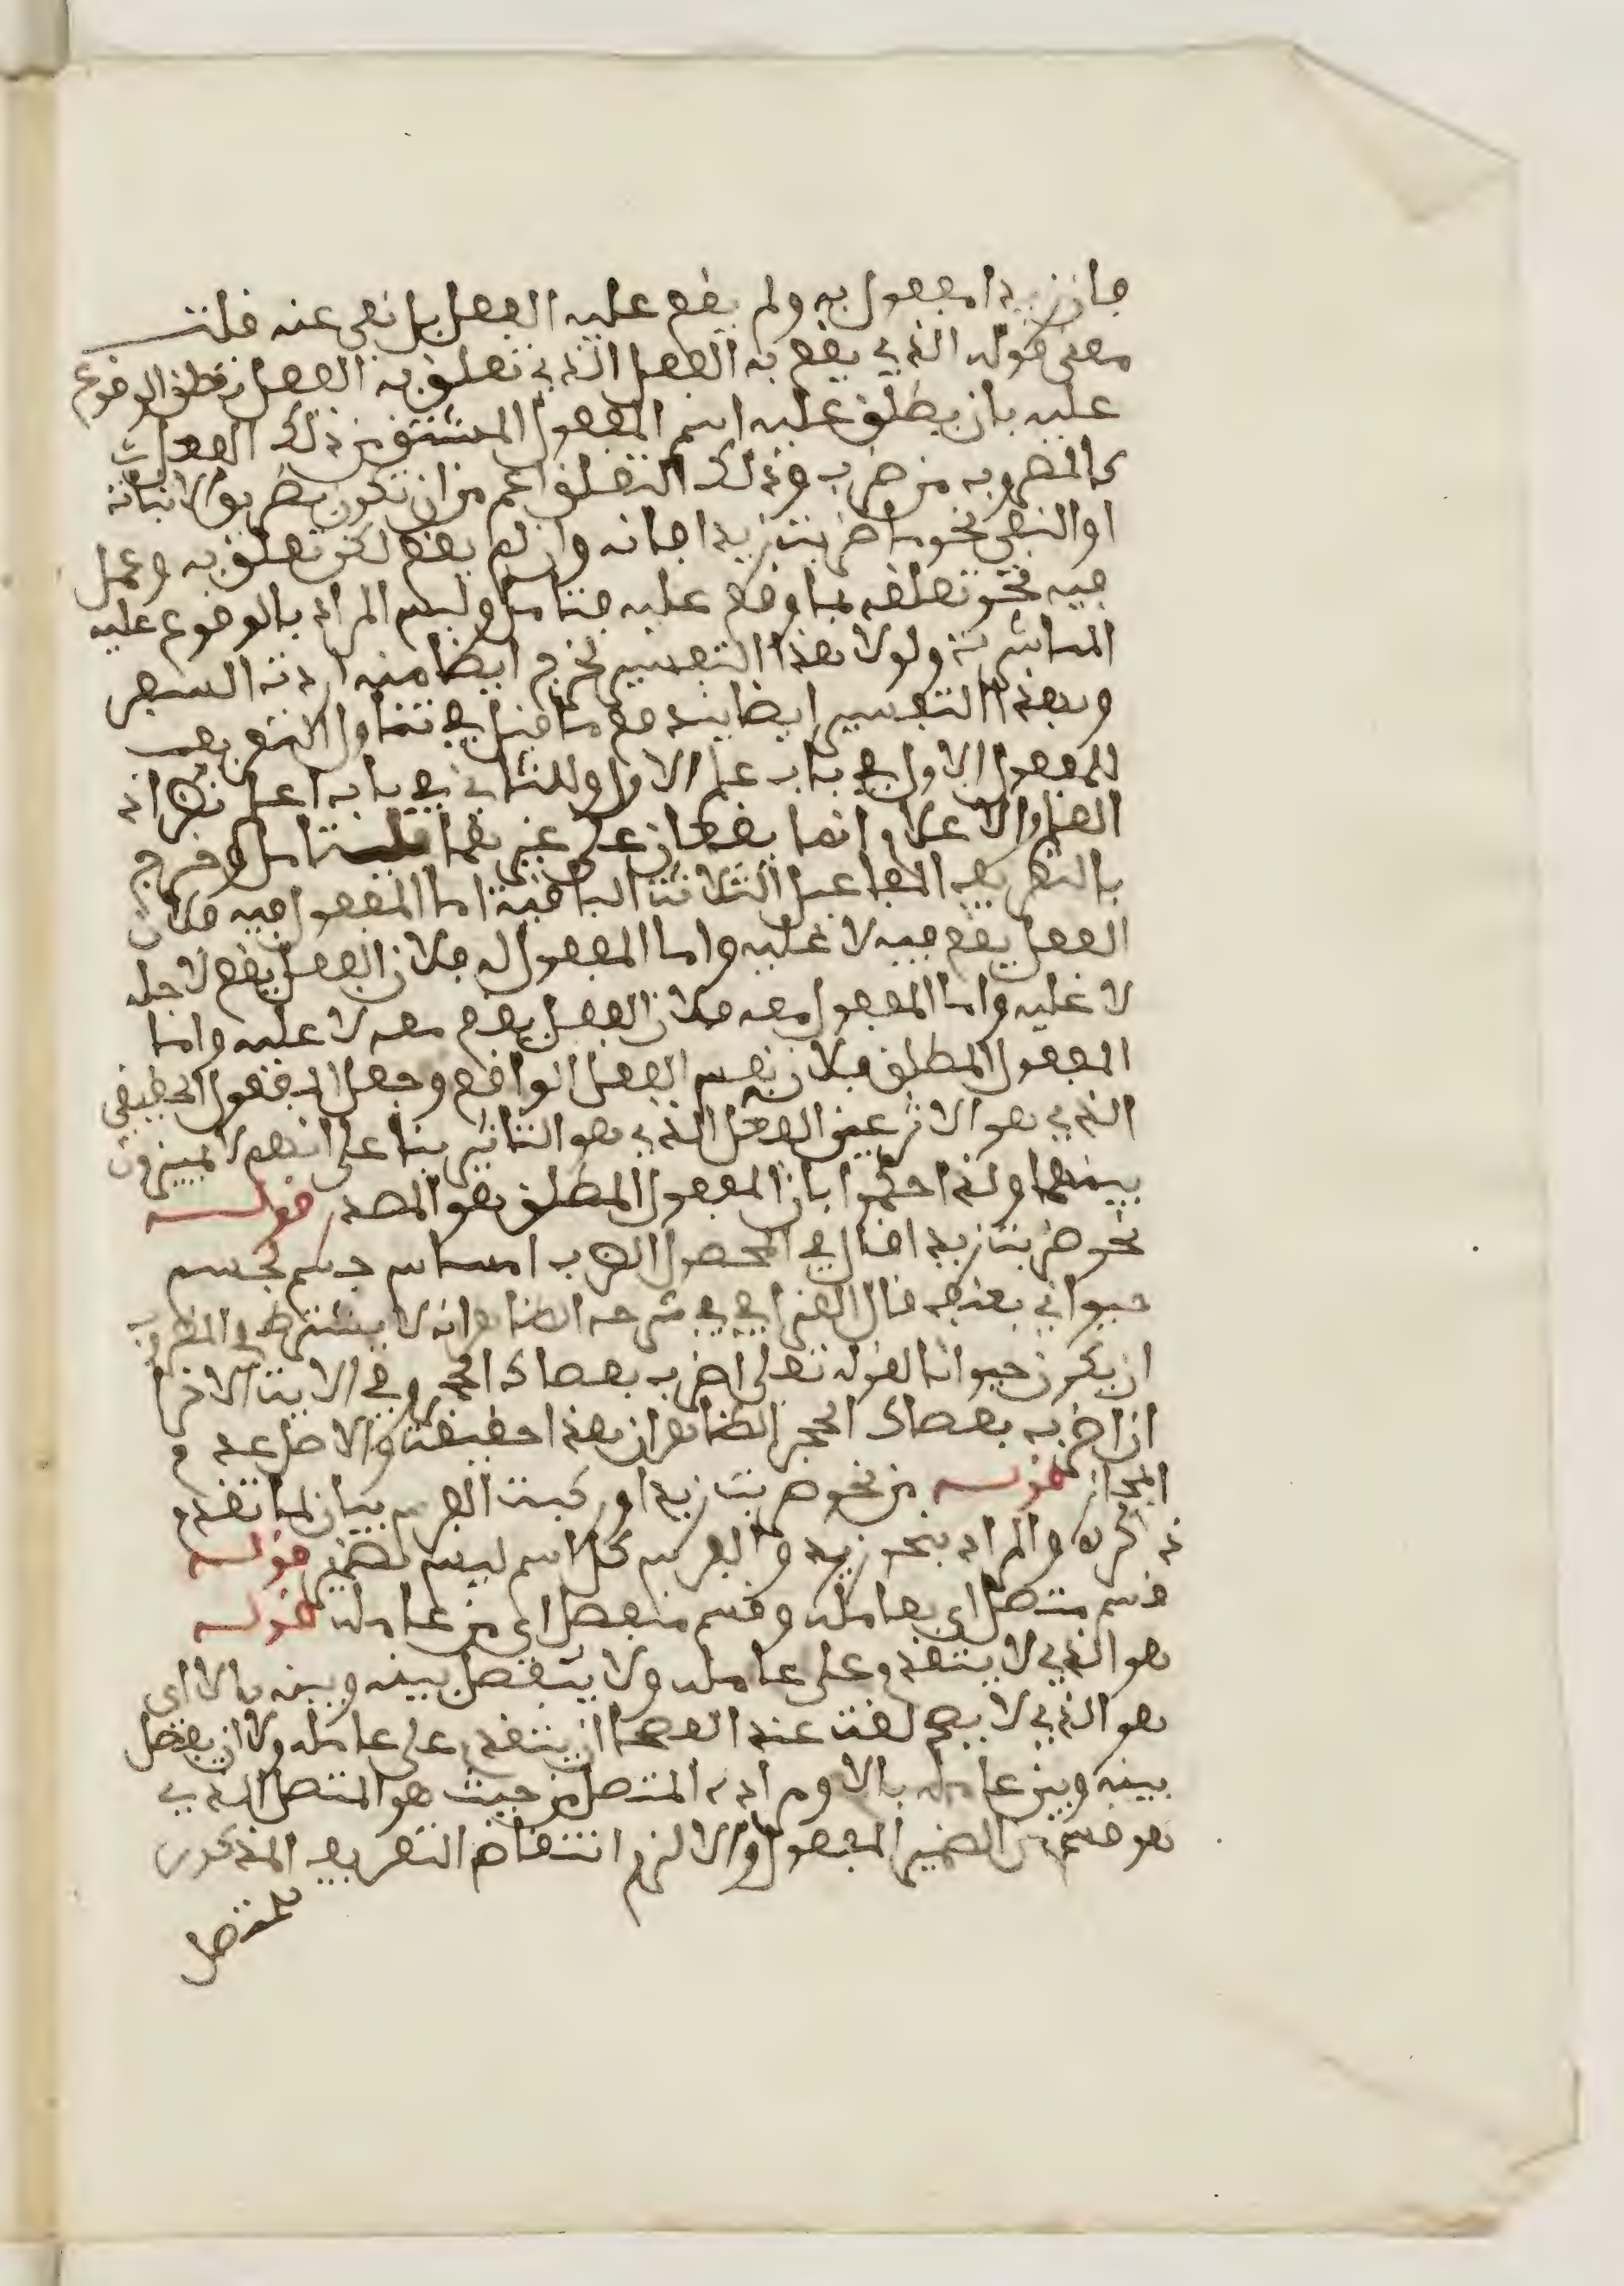 فان زيدا مفعول به ولم يقع عليه الفعل بل نفى عنه قلت
معنى قوله الذي يقع به الفعل الذي تعلق به الفعل الوقوع
عليه بان يطلق عليه اسم المفعول المشتق من ذلك الفعل
كالمضروب من ضرب وذلك التعلق اعم من ان تكون بطريق الاثبات
او النفي نحو ما ضربت زيدا فانه وان لم يقع لكن تعلق به وعمل
فيه نحو تعلقه بما وقع عليه فتامل وليس المراد بالوقوع عليه
المباشرة ولولا هذا التفسير لخرج ايضا منه اردت السفر
وبهذا التفسير ايضا يندفع ما قيل في تناول التعريف
للمفعول الاول في باب علم الاول وللثاني في باب اعلم نظر اذ
العلم والاعلام انما يقعان على غيرهما فليتامل وخرج
بالتعريف المفاعيل الثلاثة الباقية اما المفعول فيه فلان
الفعل يقع فيه لا عليه واما المفعول له فلان الفعل يقع لاجله
لا عليه واما المفعول معه فلان الفعل يقع معه لا عليه واما
المفعول المطلق فلان نفس الفعل الواقع وجعل المفعول الحقيقي
الذي هو الاثر عين الفعل الذي هو التاثير بنا على انهم لا يميزون
بينهما ولذا حكموا بان المفعول المطلق هو المصدر قوله
نحو ضربت زيدا قال في المحصول الضرب امساس جسم بجسم
حيواني بعنف قال القرافي في شرحه الظاهر انه لا يشترط في المضروب
ان يكون حيوانا لقوله تعلى اضرب بعصاك الحجر وفي الاية الاخرا
ان اضرب بعصاك الحجر الظاهر ان هذا حقيقة والاصل عدم
المجاز قوله من نحو ضربت زيدا وركبت الفرس بيان لما تقدم
ذكره والمراد بنحو زيد والفرس كل اسم ليس بضمير قوله
قسم متصل اي بعامله وقسم منفصل اي من عامله قوله
هو الذي لا يتقدم على عامله ولا ينفصل بينه وبينه بالا اي
هو الذي لا يصح لغة عند الفصحا ان يتقدم على عامله ولا ان يفصل
بينه وبين عامله بالا ومراده المتصل من حيث هو المتصل الذي
هو قسم من الضمير المفعول والا لزم انتقاض التعريف المذكور
بمتصل